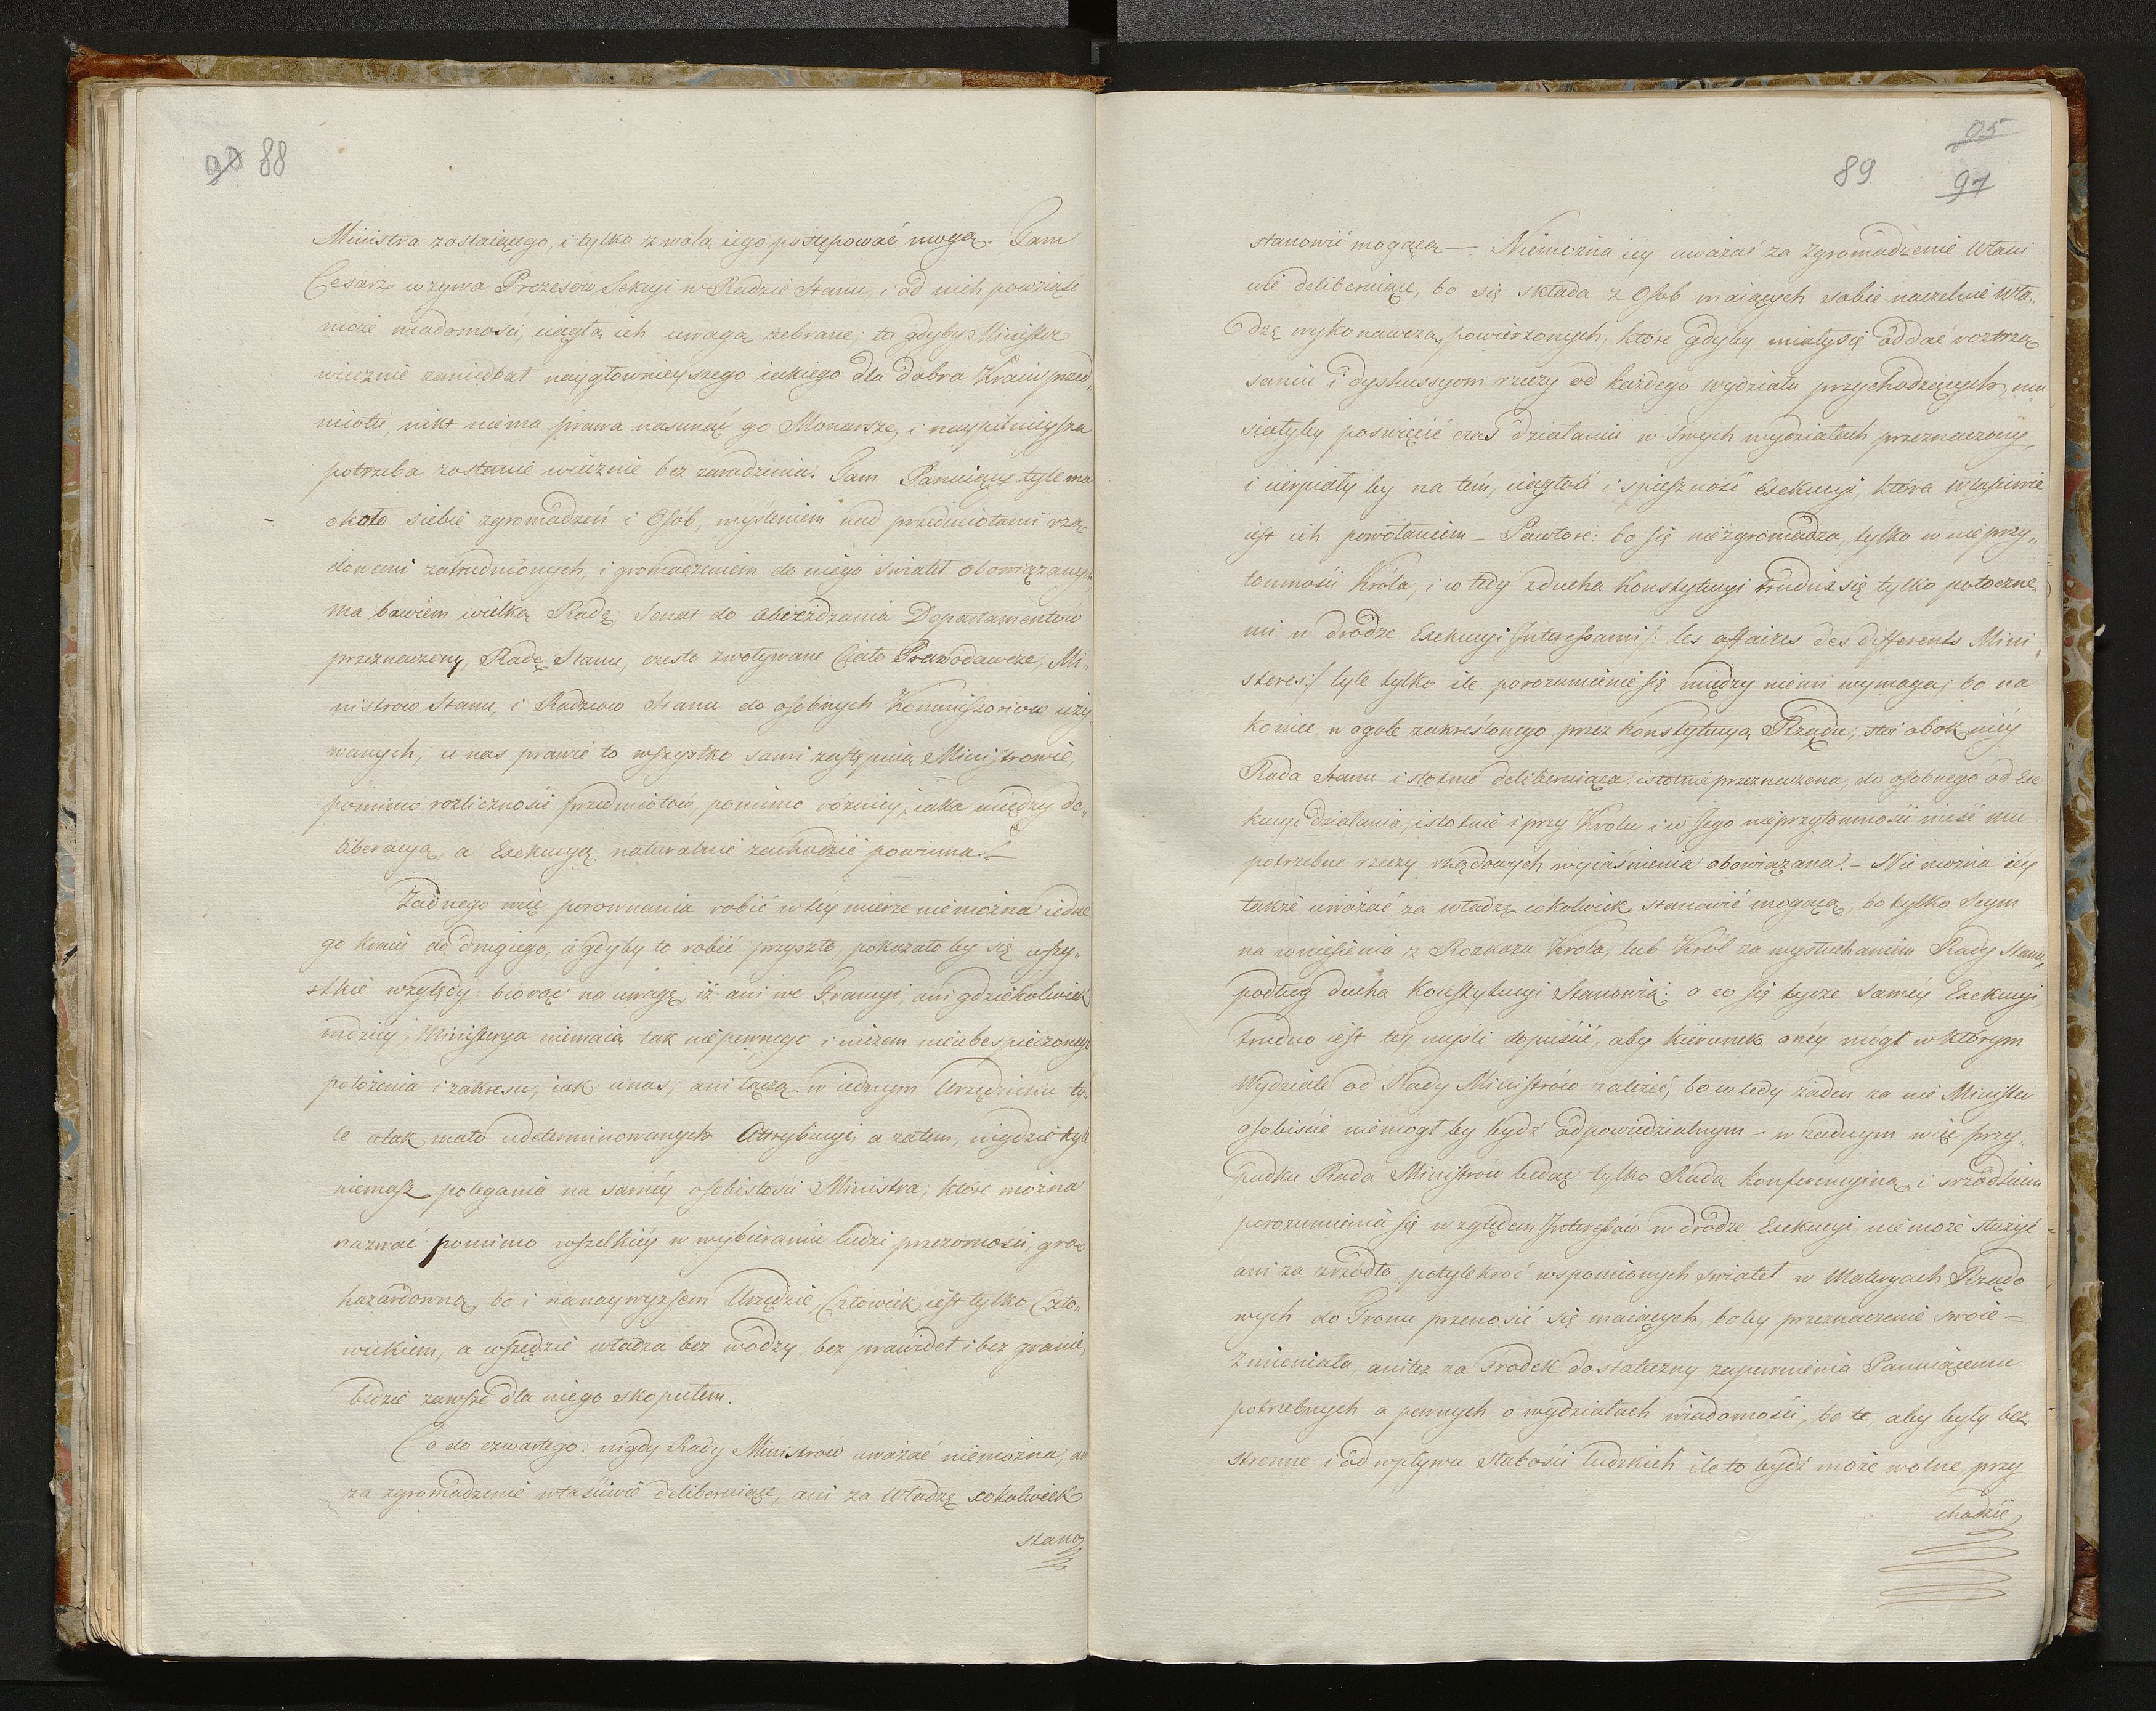 90 88
Ministra zostaiącego, i tylko z wolą iego postępować mogą. Tam
Cesarz wzywa Prezesów Sekcyi w Radzie Stanu, i od nich powziąść
może wiadomości, ciągłą ich uwagą zebrane; tu gdyby Minister
wiecznie zaniedbał naygłównieyszego iakiego dla dobra Kraiu przed„
miotu, nikt niema prawa nasunąć go Monarsze, i naypilnieysza
potrzeba zostanie wiecznie bez zaradzenia. Tam Panuiący tyle ma
około siebie zgromadzeń i Osób, myśleniem nad przedmiotami rzą„
dowemi zatrudnionych, i gromadzeniem do niego świateł obowiązanych,
ma bowiem wielką Radę, Senat do obieżdzania Departamentów
przeznaczony, Radę Stanu, często zwoływane Ciało Prawodawcze, Mi„
nistrów Stanu, i Radzców Stanu do osobnych Kommissoriow uży„
wanych; u nas prawie to wszystko sami zastępuią Ministrowie,
pomimo rozliczności przedmiotów, pomimo różnicy, iaka między de„
liberacyą, a Exekucyą naturalnie zachodzić powinna. —
Żadnego więc porownania robić w téy mierze niemożna iedne„
go kraiu do drugiego, a gdyby to robić przyszło, pokazało by się wszy„
stkie względy biorąc na uwagę, iż ani we Francyi, ani gdziekolwiek
indziéy, Ministerya niemaią tak niepewnego i niczem nieubespieczonego
położenia i zakresu, iak u nas; ani łączą w iednym Urzędniku ty„
le a tak mało udeterminowanych Attrybucyi, a zatem, nigdzie tyle
niemasz polegania na saméy osobistości Ministra, które można
nazwać pomimo wszelkiéy w wybieraniu ludzi przezorności, grą
hazardowną, bo i na naywyższem Urzędzie, Człowiek iest tylko Czło„
wiekiem, a wszędzie władza bez wodzy, bez prawideł i bez granic,
będzie zawsze dla niego skopułem.
Co do czwartego: nigdy Rady Ministrów uważać niemożna, ani
za zgromadzenie właściwie deliberuiące, ani za Władzę cokolwiek
stano„
95
89 91
stanowić mogącą — Niemożna iéy uważać za Zgromadzenie Właści
wie deliberuiące, bo się składa z Osób maiących sobie naczelnie Wła„
dzę wykonawczą powierzonych, które gdyby miały się oddać roztrzą
saniu i dyskussyom rzeczy od każdego wydziału przychodzących, mu
siałyby poświęcić czas działaniu w swych wydziałach przeznaczony,
i cierpiały by na tém, ciągłość i spieszność Exekucyi, która właściwie
iest ich powołaniem — Powtore: bo się niezgromadza, tylko w nieprzy„
tomności Króla, i w tedy z ducha Konstytucyi trudni się tylko potoczne„
mi w drodze Exekucyi Interessami /: les affaires des differents Mini„
steres :/ tyle tylko ile porozumienie się między niemi wymaga; bo na
koniec w ogóle zakreślonego przez Konstytucyą Rządu, stoi obok niéy
Rada Stanu istotnie deliberuiąca, istotnie przeznaczona, do osobnego od Exe
kucyi działania, istotnie i przy Krolu i w Jego nieprzytomności nieść mu
potrzebne rzeczy rządowych wyiaśnienia obowiązana. — Nie można iéy
także uważać za władzę cokolwiek stanowić mogącą, bo tylko Seym
na wniesienia z Rozkazu Krola, lub Król za wysłuchaniem Rady Stanu,
podług ducha Konstytucyi Stanowią; a co się tycze saméy Exekucyi,
trudno iest téy myśli dopuścić, aby kierunek onéy mógł w którym
Wydziale od Rady Ministrów zależéć, bo w tedy żaden za nie Minister
osobiście niemógł by bydź odpowiedzialnym — w żadnym więc przy„
padku Rada Ministrów będąc tylko Radą konferencyiną, i srzodkiem
porozumienia się względem Interessów w drodze Exekucyi nie może służyć
ani za zrzódło, potylekroć wspomionych świateł w Materyach Rządo
wych do Tronu przenosić się maiących, boby przeznaczenie swoie =
zmieniała, ani też za srodek dostateczny zapewnienia Panuiącemu
potrzebnych a pewnych o wydziałach wiadomości, bo te, aby były bez
stronne i od wpływu słabości ludzkich ile to bydź może wolne, przy
chodzić,